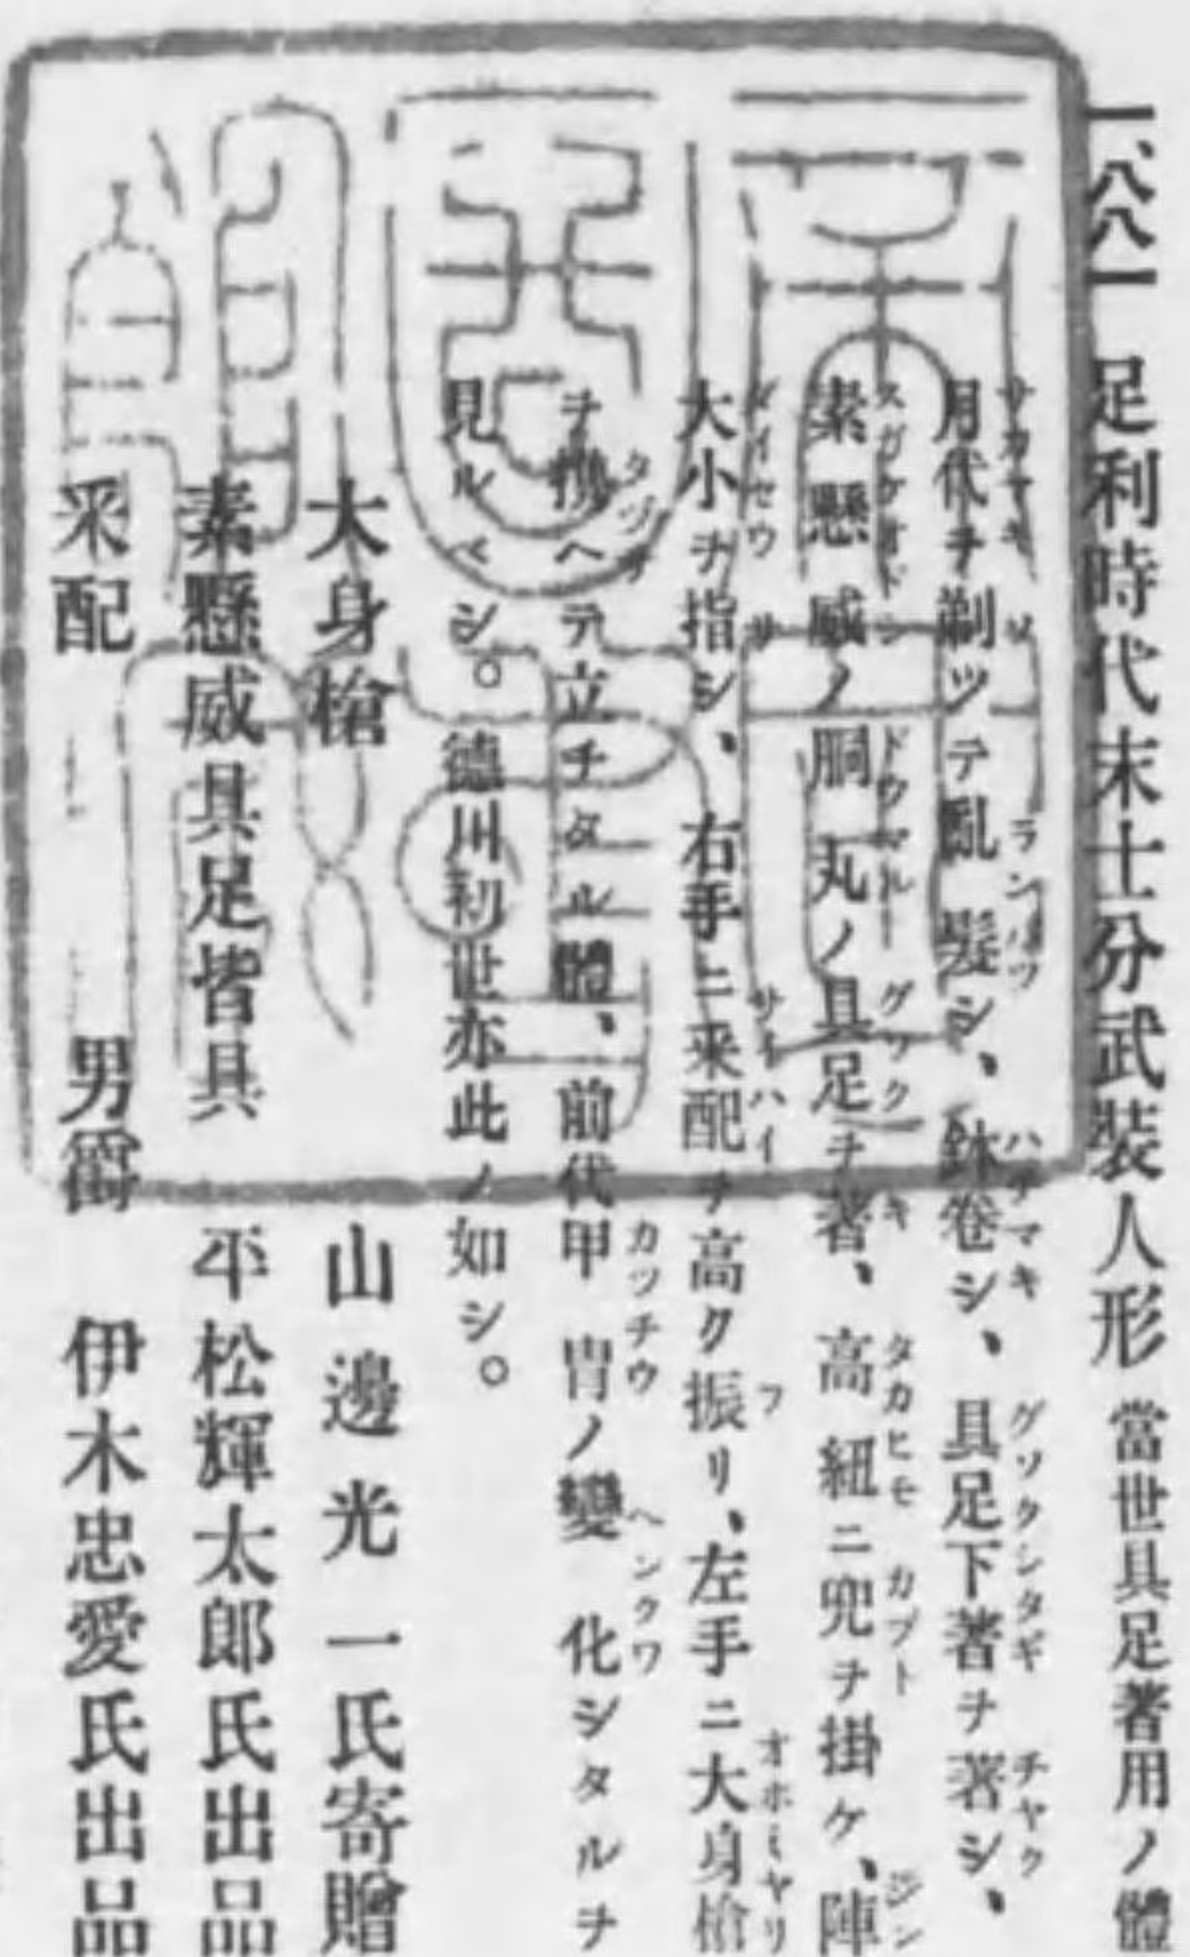 一、八八一 足利時代末士分武裝人形 當世具足著用ノ體
月代ヲ剃ツテ亂髮シ、鉢卷シ、具足下著ヲ著シ、
素懸威ノ胴丸ノ具足ヲ著、高紐ニ兜ヲ掛ケ、陣
大小ヲ指シ、右手ニ采配ヲ高ク振リ、左手ニ大身槍
ヲ携ヘテ立チタル體、前代甲冑ノ變化シタルヲ
見ルベシ。德川初世亦此ノ如シ。
大身槍 山邊光一氏寄贈
素懸威具足皆具 平松輝太郎氏出品
采配 男爵 伊木忠愛氏出品